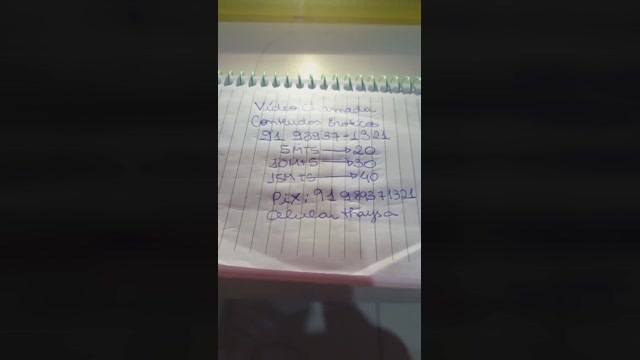 Video Chamada
Conteudos Eroticos
91 98937-1321
5MTS → 20
10MTS → 30
15MTS → 40
Pix: 91 989371321
Celular thaysa